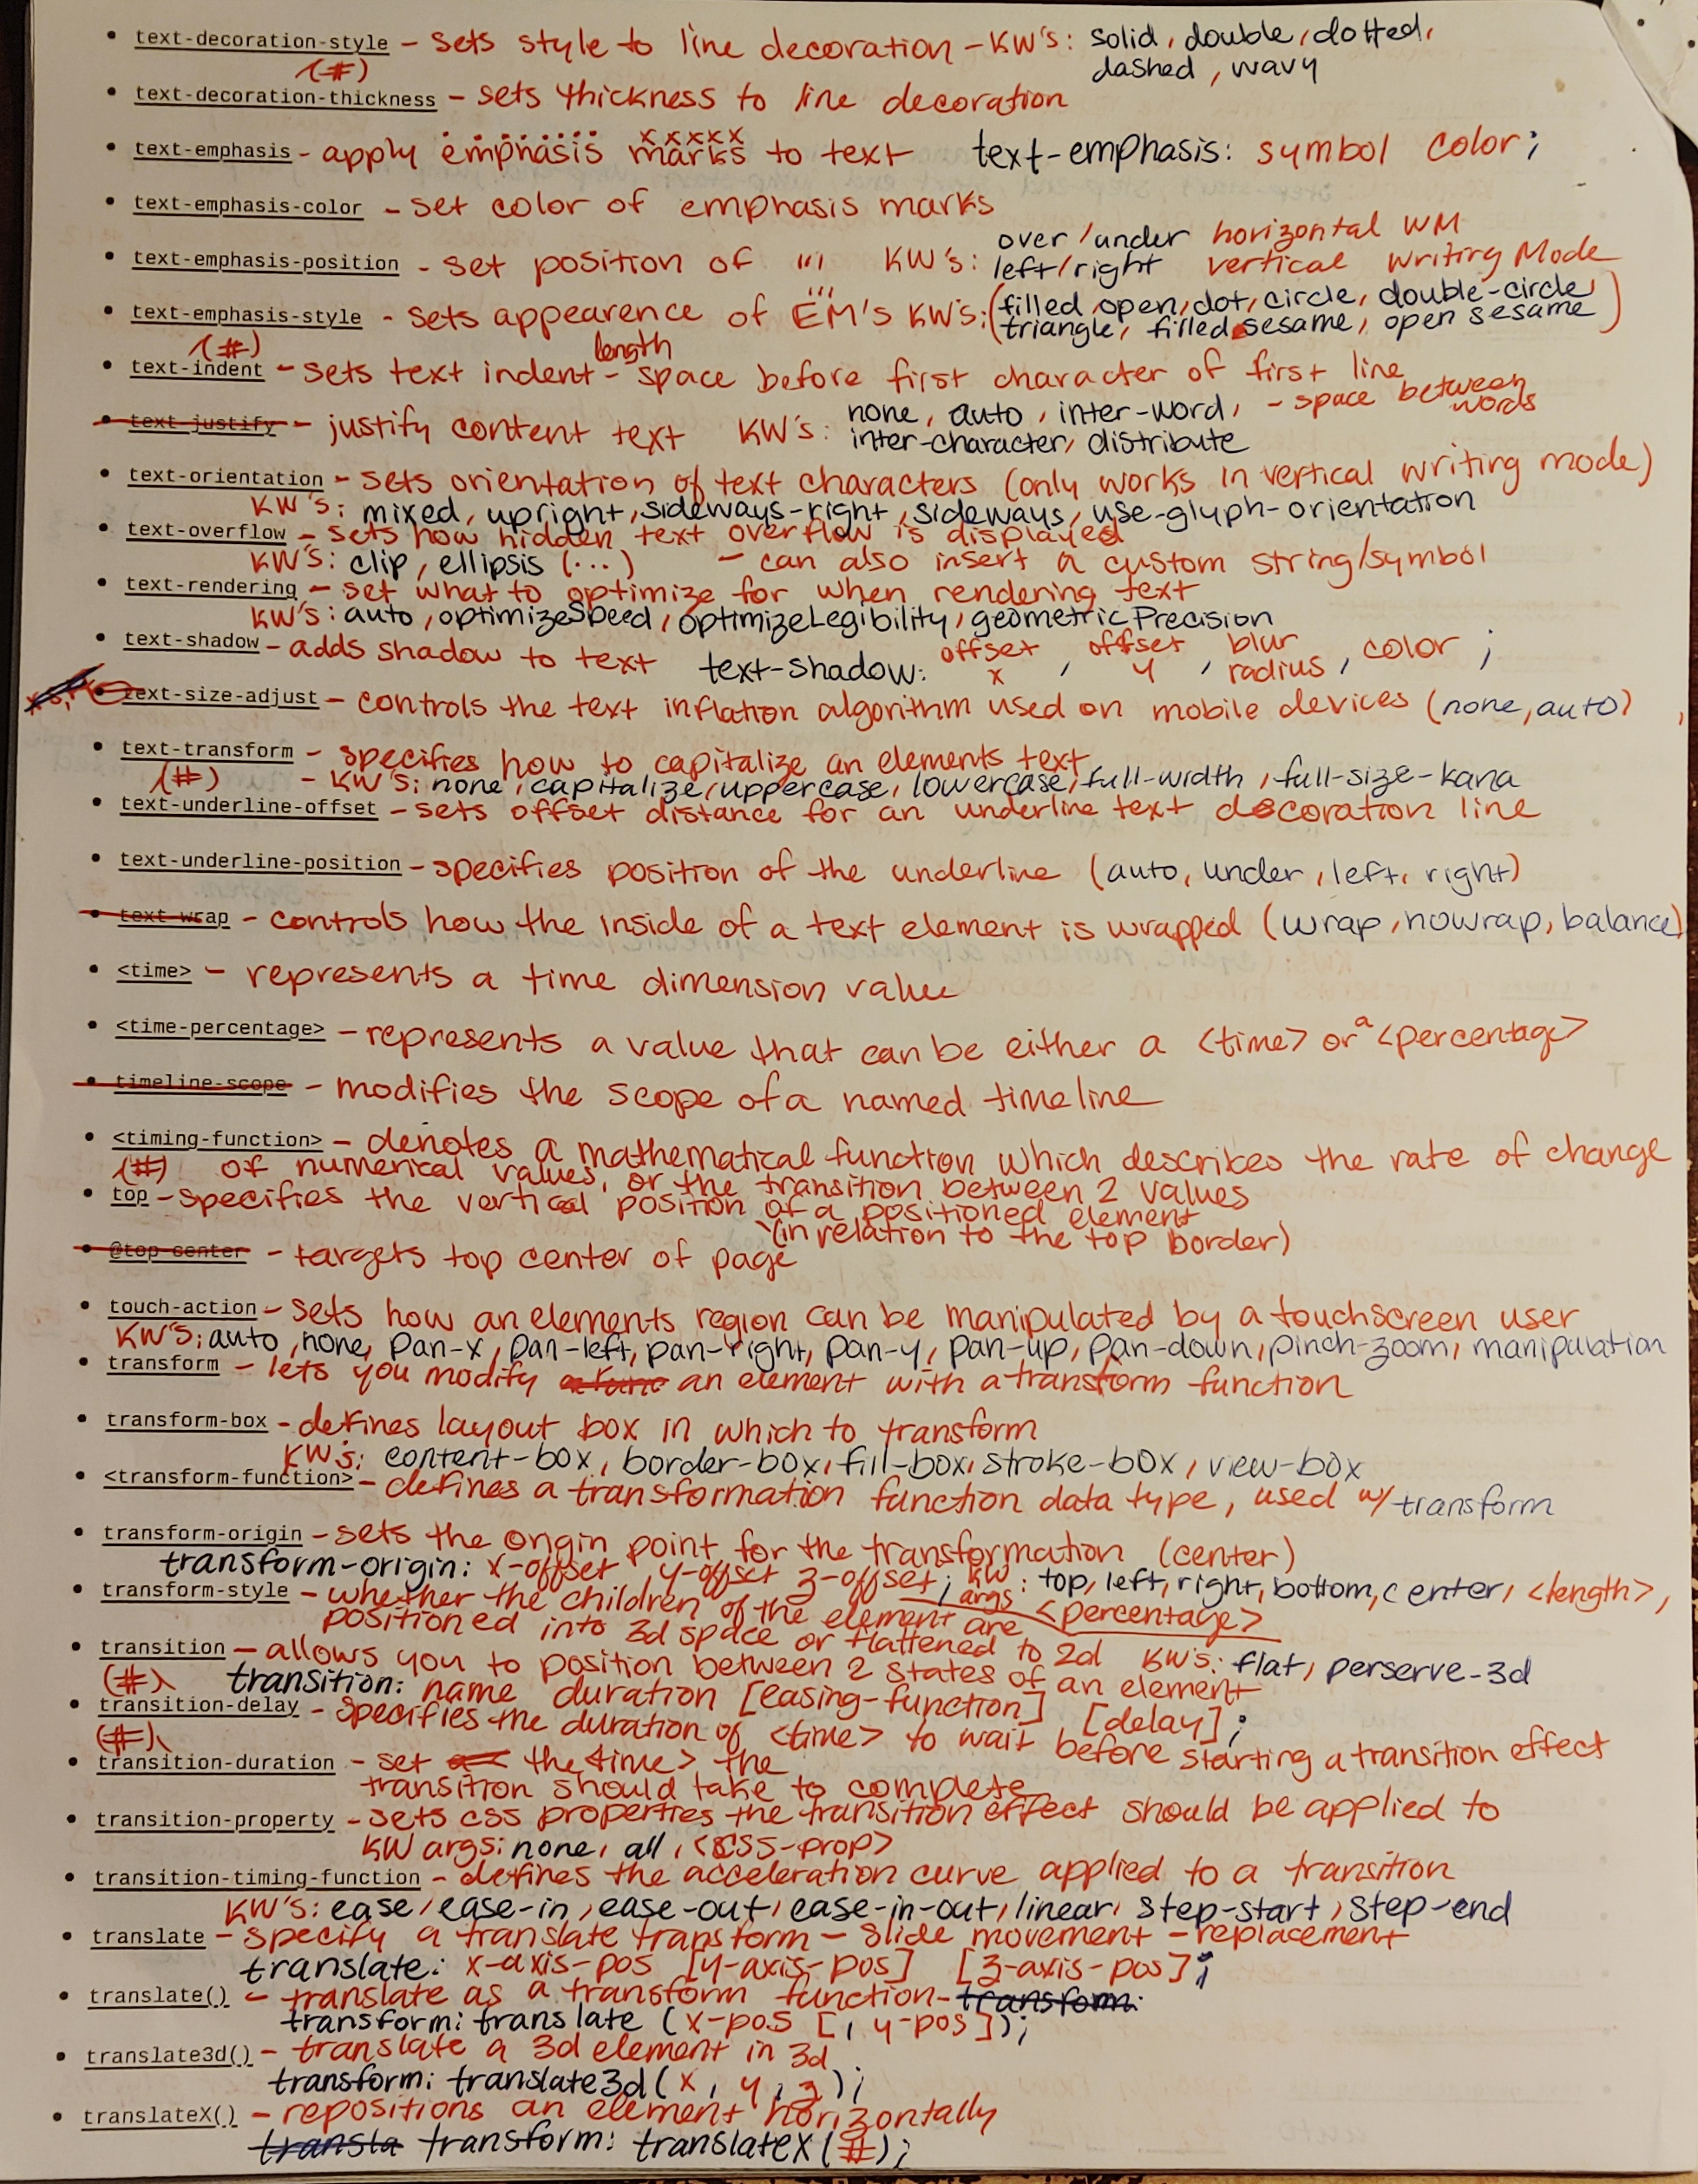 • text-decoration-style – sets style to line decoration – KW's: solid, double, dotted,
dashed, wavy
(#)
• text-decoration-thickness – sets thickness to line decoration
• text-emphasis – apply emphasis marks to text text-emphasis: symbol color;
• text-emphasis-color – set color of emphasis marks
• text-emphasis-position – set position of "" KW's: over/under horizontal WM
left/right vertical writing Mode
• text-emphasis-style – sets appearence of EM's KW's: (filled, open, dot, circle, double-circle,
triangle, filled sesame, open sesame)
(#)
• text-indent – sets text indent – length space before first character of first line
• text-justify – justify content text KW's: none, auto, inter-word, – space between words
inter-character, distribute
• text-orientation – sets orientation of text characters (only works in vertical writing mode)
KW's: mixed, upright, sideways-right, sideways, use-glyph-orientation
• text-overflow – sets how hidden text overflow is displayed
KW's: clip, ellipsis (...) – can also insert a custom string/symbol
• text-rendering – set what to optimize for when rendering text
KW's: auto, optimizeSpeed, optimizeLegibility, geometricPrecision
• text-shadow – adds shadow to text text-shadow: offset x, offset y, blur radius, color;
• text-size-adjust – controls the text inflation algorithm used on mobile devices (none, auto)
• text-transform – specifies how to capitalize an elements text
(#) – KW's: none, capitalize, uppercase, lowercase, full-width, full-size-kana
• text-underline-offset – sets offset distance for an underline text decoration line
• text-underline-position – specifies position of the underline (auto, under, left, right)
• text-wrap – controls how the inside of a text element is wrapped (wrap, nowrap, balance)
• <time> – represents a time dimension value
• <time-percentage> – represents a value that can be either a <time> or a <percentage>
• timeline-scope – modifies the scope of a named timeline
• <timing-function> – denotes a mathematical function which describes the rate of change
(#) of numerical values, or the transition between 2 values
• top – specifies the vertical position of a positioned element
(in relation to the top border)
• @top-center – targets top center of page
• touch-action – sets how an elements region can be manipulated by a touchscreen user
KW's: auto, none, pan-x, pan-left, pan-right, pan-y, pan-up, pan-down, pinch-zoom, manipulation
• transform – lets you modify a func an element with a transform function
• transform-box – defines layout box in which to transform
KW's: content-box, border-box, fill-box, stroke-box, view-box
• <transform-function> – defines a transformation function data type, used w/ transform
• transform-origin – sets the origin point for the transformation (center)
transform-origin: x-offset, y-offset z-offset; KW args: top, left, right, bottom, center, <length>,
<percentage>
• transform-style – whether the children of the element are
positioned into 3d space or flattened to 2d KW's: flat, perserve-3d
• transition – allows you to position between 2 states of an element
(#) transition: name duration [easing-function] [delay];
• transition-delay – specifies the duration of <time> to wait before starting a transition effect
(#)
• transition-duration – set the <time> the
transition should take to complete
• transition-property – sets css properties the transition effect should be applied to
KW args: none, all, <CSS-prop>
• transition-timing-function – defines the acceleration curve applied to a transition
KW's: ease, ease-in, ease-out, ease-in-out, linear, step-start, step-end
• translate – specify a translate transform – slide movement – replacement
translate: x-axis-pos [y-axis-pos] [z-axis-pos];
• translate() – translate as a transform function – transform:
transform: translate (x-pos [, y-pos]);
• translate3d() – translate a 3d element in 3d
transform: translate3d(x, y, z);
• translateX() – repositions an element horizontally
transla transform: translateX(#);